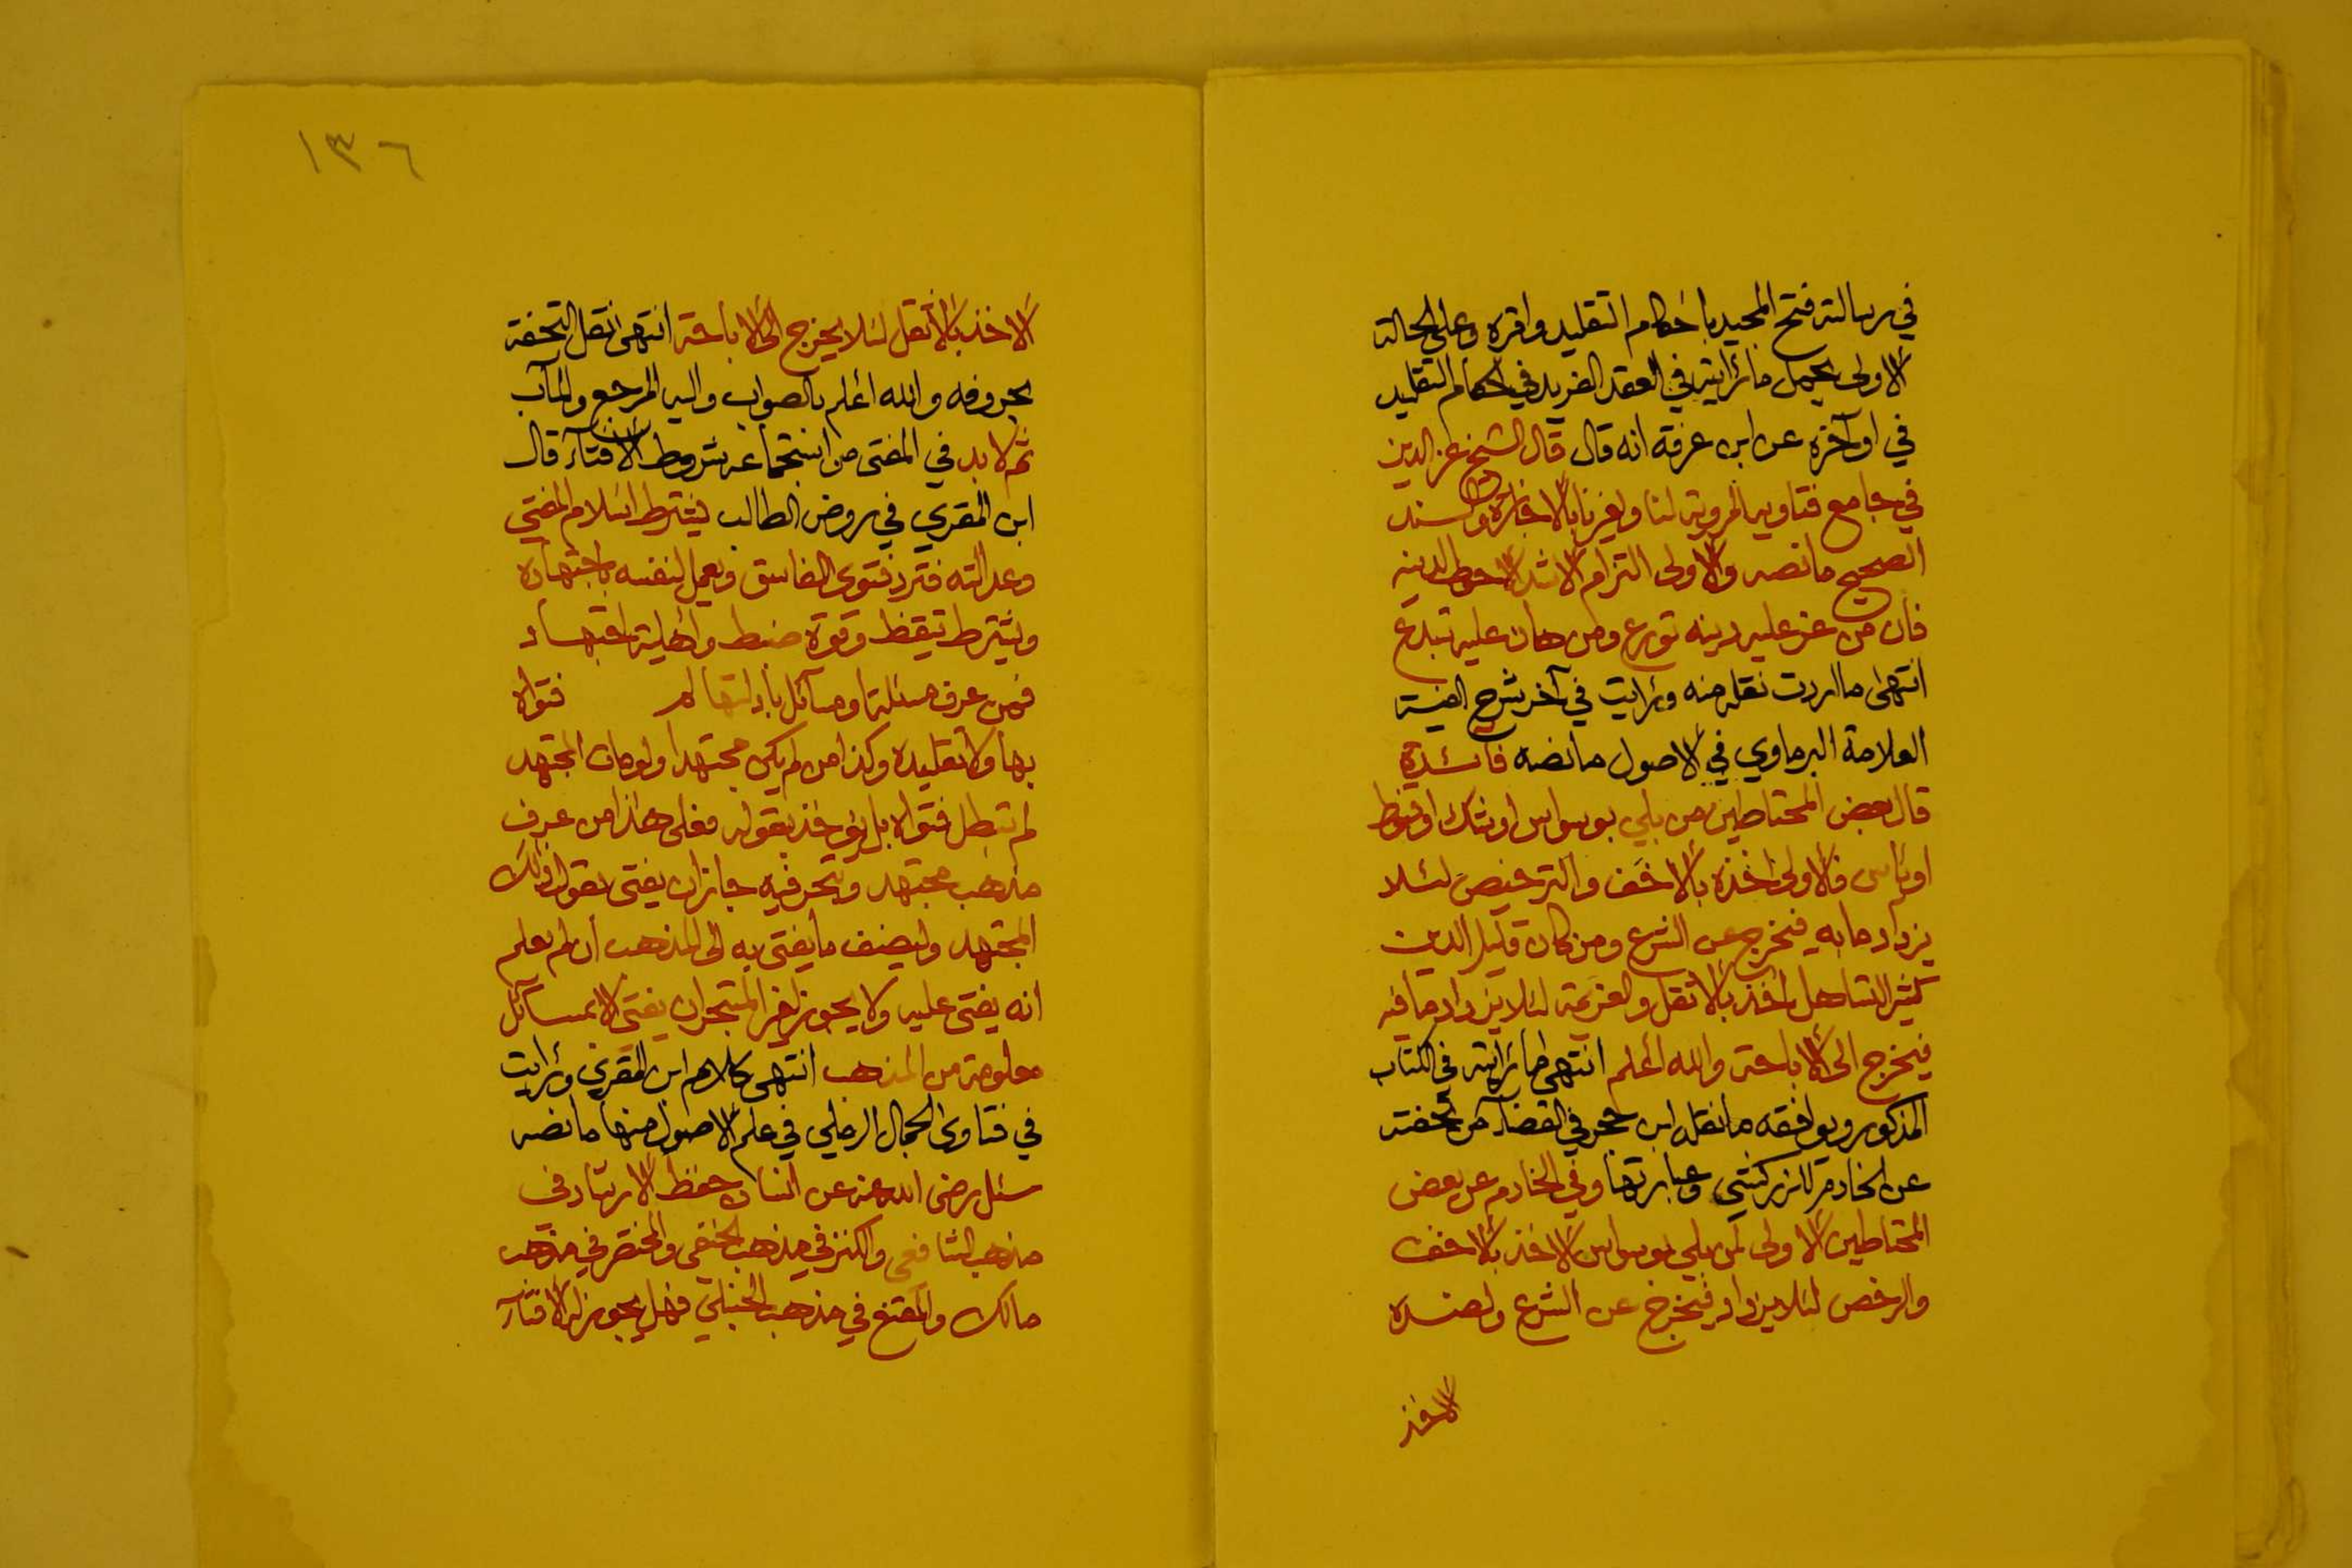 في رسالته فتح المجيد باحكام التقليد واقره وعلى الحالة
الاولى يحمل ما رأيته في العقد الفريد في احكام التقليد
في اوآخره عن ابن عرفة انه قال قال الشيخ عز الدين
في جامع فتاويه المروية لنا ولغيرنا بالاجازة والسند
الصحيح ما نصه والاولى التزام الاشد الاحوط لدينه
فان من عز عليه دينه تورع ومن هان عليه تبدع
انتهى ما اردت نقله منه ورأيت في آخر شرح الفية
العلامة البرماوي في الاصول ما نصه فائدة
قال بعض المحتاطين من بلي بوسواس او شك او قنوط
او يأس فالاولى اخذه بالاخف والترخيص لئلا
يزداد ما به فيخرج عن الشرع ومن كان قليل الدين
كثير التساهل اخذ بالاثقل والعزيمة لئلا يزداد ما فيه
فيخرج الى الاباحة والله اعلم انتهى ما رأيته في الكتاب
المذكور ويوافقه ما نقله ابن حجر في القضآء من تحفته
عن الخادم للزركشي وعبارتها وفي الخادم عن بعض
المحتاطين الاولى لمن بلي بوسواس الاخذ بالاخف
والرخص لئلا يزداد فيخرج عن الشرع ولضده
الاخذ
١٣٦
الاخذ بالاثقل لئلا يخرج الى الاباحة انتهى نقل التحفة
بحروفه والله اعلم بالصواب واليه المرجع والمآب
ثم لابد في المفتى من استجماع شروط الافتآء قال
ابن المقري في روض الطالب يشترط اسلام المفتي
وعدالته فترد فتوى الفاسق ويعمل لنفسه باجتهاده
ويشترط تيقظ وقوة ضبط واهلية اجتهاد
فمن عرف مسئلة او مسآئل بادلتها لم فتواه
بها ولا تقليده وكذا من لم يكن مجتهدا ولو مات المجتهد
لم تبطل فتواه بل يؤخذ بقوله فعلى هذا من عرف
مذهب مجتهد وتبحر فيه جاز ان يفتى بقول ذلك
المجتهد وليضف ما يفتى به الى المذهب ان لم يعلم
انه يفتى عليه ولا يجوز لغير المتبحر ان يفتى الا بمسآئل
معلومة من المذهب انتهى كلام ابن المقري ورأيت
في فتاوى الجمال الرملي في علم الاصول منها ما نصه
سئل رضى الله عنه عن انسان حفظ الارشاد في
مذهب الشافعى والكنز في مذهب الحنفى والمختصر في مذهب
مالك والمقنع في مذهب الحنبلي فهل يجوز له الافتآء